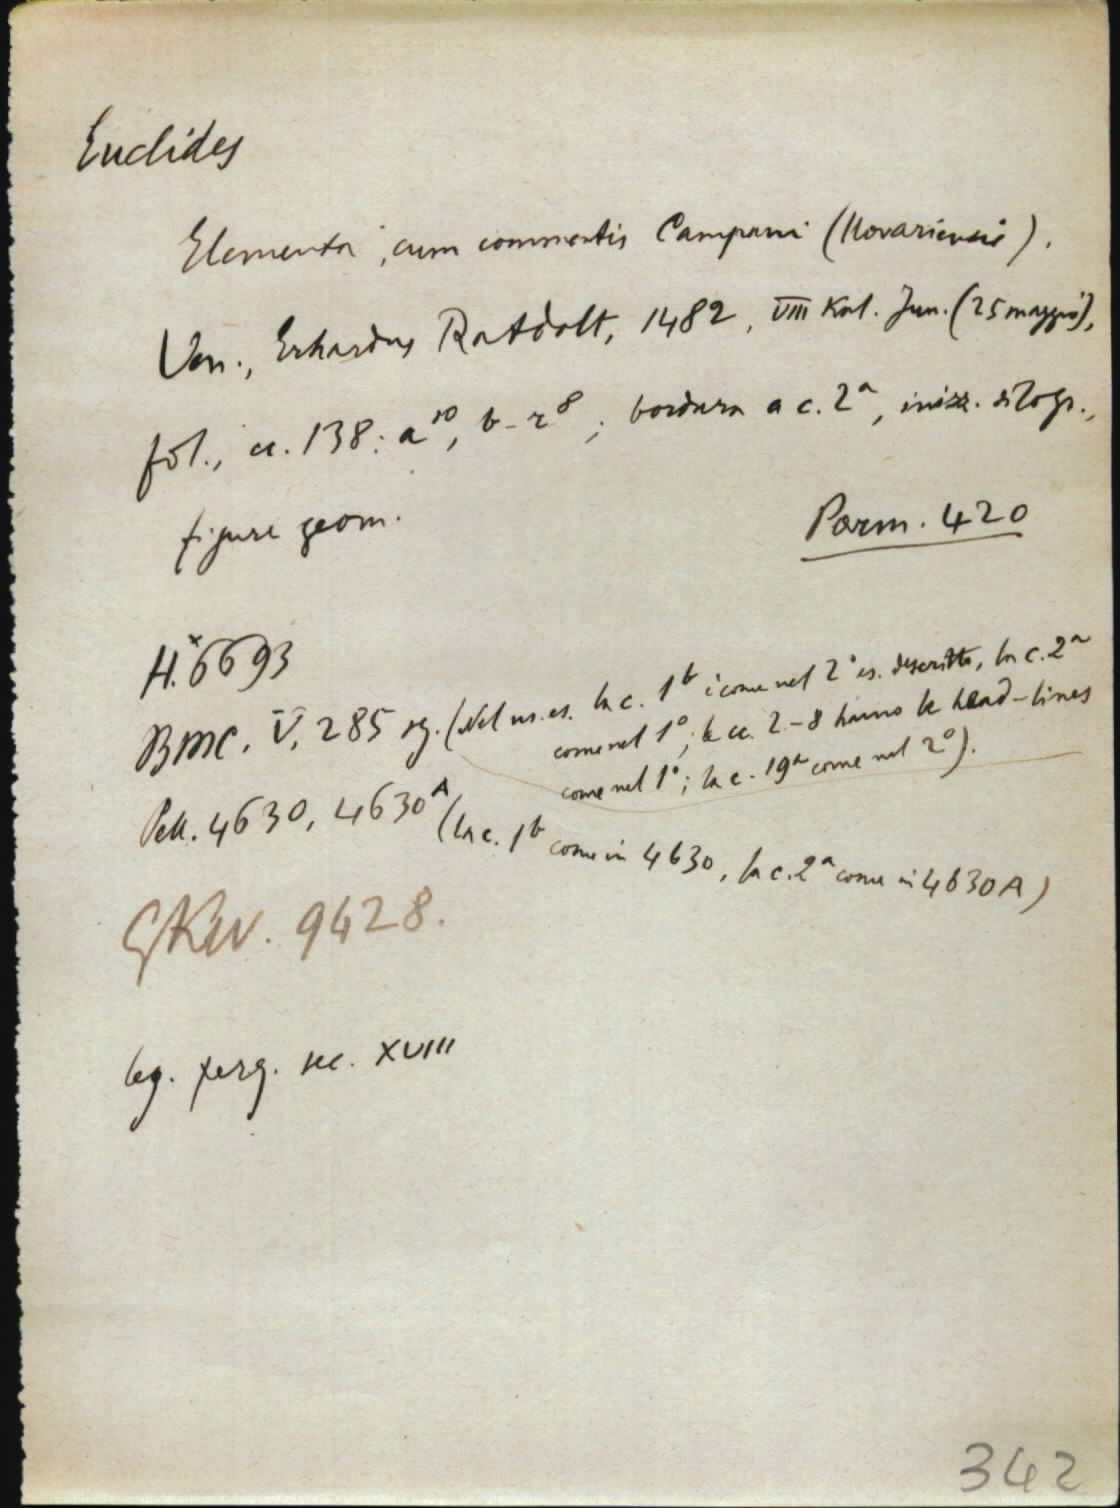 Euclides
Elementa, cum commentis Campani (Novariensis).
Ven., Erhardus Ratdolt, 1482, VIII Kal. Jun. (25 maggio),
fol., cc. 138: a¹⁰, b-r⁸; bordura a c. 2ᵃ, inizz. silogr.,
figure geom.
Parm. 420
H.ˣ 6693
BMC. V, 285 sg. (Nel ns. es. la c. 1ᵇ è come nel 2° es. descritto, la c. 2ᵃ
come nel 1°; le cc. 2-8 hanno le head-lines
come nel 1°; la c. 19ᵃ come nel 2°).
Pell. 4630, 4630ᴬ (la c. 1ᵇ come in 4630, la c. 2ᵃ come in 4630A)
GKW. 9428.
leg. perg. sec. XVIII
342